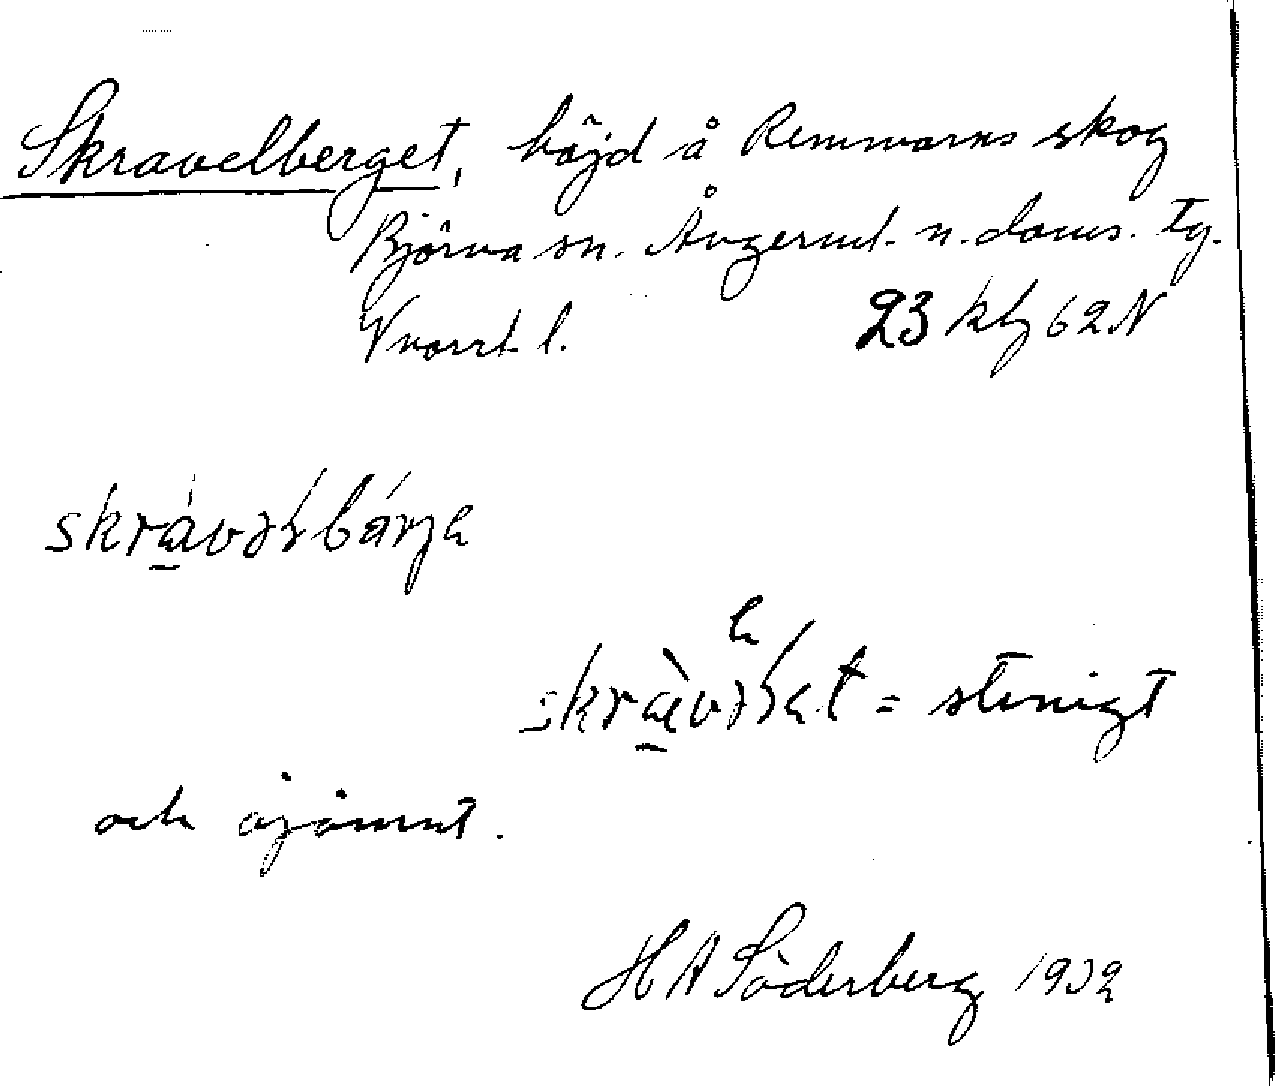 Skravelberget, höjd å Remmarns skog
Björna sn. Ångerml. n. doms. Tg.
Tvärrt l. 23 kbg 62 N
skrávəlbárja
skràvəlat = stenigt
och ojämnt.
H A Söderberg 1932